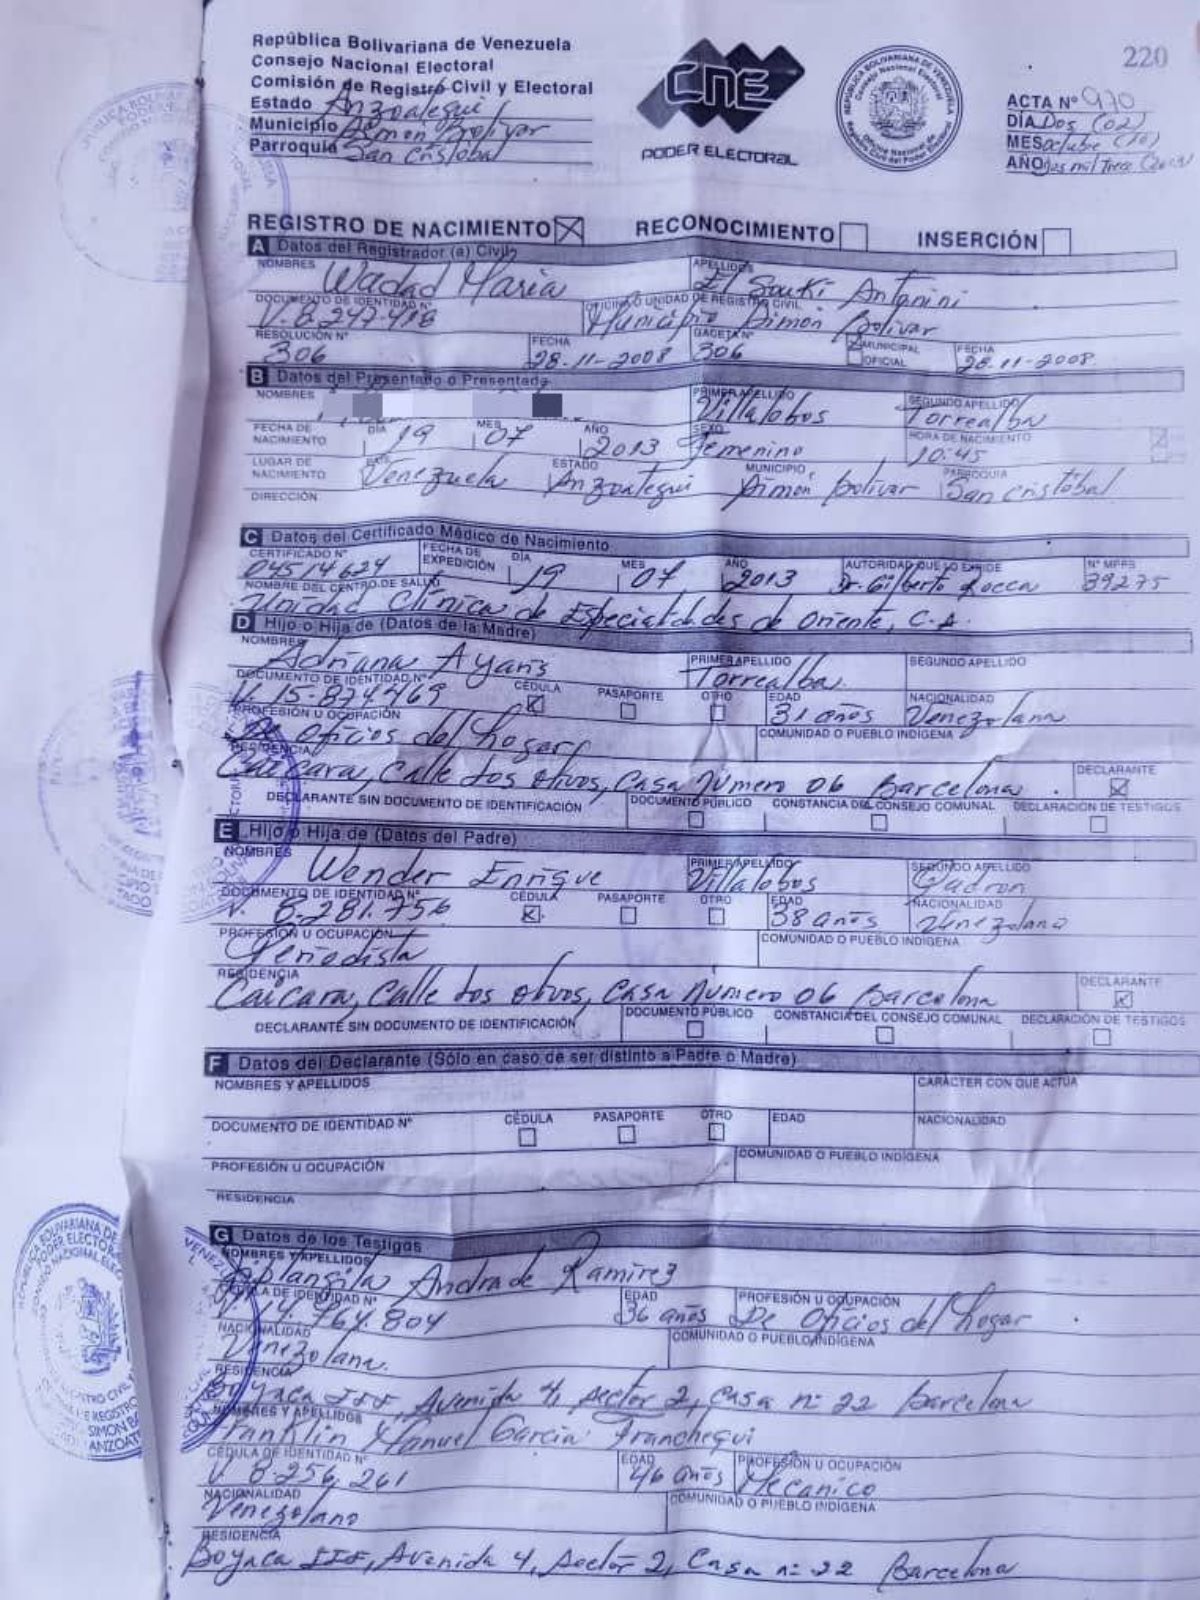 República Bolivariana de Venezuela
Consejo Nacional Electoral
Comisión de Registro Civil y Electoral
Estado Anzoategui
Municipio Simon Bolivar
Parroquia San Cristobal
CNE
PODER ELECTORAL
220
ACTA Nº 970
DÍA Dos (02)
MES octubre (10)
AÑO dos mil Trece (2013)
REGISTRO DE NACIMIENTO RECONOCIMIENTO INSERCIÓN
A Datos del Registrador (a) Civil
NOMBRES APELLIDOS
Wadad Maria El Souki Antonini
DOCUMENTO DE IDENTIDAD Nº OFICINA O UNIDAD DE REGISTRO CIVIL
V-8.247.418 Municipio Simon Bolivar
RESOLUCIÓN Nº FECHA GACETA Nº MUNICIPAL FECHA
306 28-11-2008 306 OFICIAL 28-11-2008.
B Datos del Presentado o Presentada
NOMBRES PRIMER APELLIDO SEGUNDO APELLIDO
Villalobos Torrealba
FECHA DE NACIMIENTO DÍA MES AÑO SEXO HORA DE NACIMIENTO
19 07 2013 Femenino 10:45
LUGAR DE NACIMIENTO PAÍS ESTADO MUNICIPIO PARROQUIA
Venezuela Anzoategui Simon Bolivar San Cristobal
DIRECCIÓN
C Datos del Certificado Médico de Nacimiento
CERTIFICADO Nº FECHA DE EXPEDICIÓN DÍA MES AÑO AUTORIDAD QUE LO EXPIDE Nº MPPS
04514624 19 07 2013 Dr. Gilberto Rocca 39275
NOMBRE DEL CENTRO DE SALUD
Unidad Clínica de Especialidades de Oriente, C.A.
D Hijo o Hija de (Datos de la Madre)
NOMBRES PRIMER APELLIDO SEGUNDO APELLIDO
Adriana Ayaris Torrealba
DOCUMENTO DE IDENTIDAD Nº CÉDULA PASAPORTE OTRO EDAD NACIONALIDAD
V. 15-874.469 31 años Venezolana
PROFESIÓN U OCUPACIÓN COMUNIDAD O PUEBLO INDÍGENA
De oficios del hogar
RESIDENCIA DECLARANTE
Caicara, Calle Los olivos, Casa Número 06 Barcelona.
DECLARANTE SIN DOCUMENTO DE IDENTIFICACIÓN DOCUMENTO PÚBLICO CONSTANCIA DEL CONSEJO COMUNAL DECLARACIÓN DE TESTIGOS
E Hijo o Hija de (Datos del Padre)
NOMBRES PRIMER APELLIDO SEGUNDO APELLIDO
Wender Enrique Villalobos Padron
DOCUMENTO DE IDENTIDAD Nº CÉDULA PASAPORTE OTRO EDAD NACIONALIDAD
V. 8.281.756 38 años Venezolano
PROFESIÓN U OCUPACIÓN COMUNIDAD O PUEBLO INDÍGENA
Periodista
RESIDENCIA DECLARANTE
Caicara, Calle Los olivos, Casa Número 06 Barcelona
DECLARANTE SIN DOCUMENTO DE IDENTIFICACIÓN DOCUMENTO PÚBLICO CONSTANCIA DEL CONSEJO COMUNAL DECLARACIÓN DE TESTIGOS
F Datos del Declarante (Sólo en caso de ser distinto a Padre o Madre)
NOMBRES Y APELLIDOS CARÁCTER CON QUE ACTÚA
DOCUMENTO DE IDENTIDAD Nº CÉDULA PASAPORTE OTRO EDAD NACIONALIDAD
PROFESIÓN U OCUPACIÓN COMUNIDAD O PUEBLO INDÍGENA
RESIDENCIA
G Datos de los Testigos
NOMBRES Y APELLIDOS
Andrade Ramirez
CÉDULA DE IDENTIDAD Nº EDAD PROFESIÓN U OCUPACIÓN
V. 14.764.804 36 años De Oficios del hogar
NACIONALIDAD COMUNIDAD O PUEBLO INDÍGENA
Venezolana
RESIDENCIA
Boyaca III, Avenida 4, sector 2, Casa nº 22 Barcelona
NOMBRES Y APELLIDOS
Franklin Manuel Garcia Franchequi
CÉDULA DE IDENTIDAD Nº EDAD PROFESIÓN U OCUPACIÓN
V. 8.256.261 46 años Mecanico
NACIONALIDAD COMUNIDAD O PUEBLO INDÍGENA
Venezolano
RESIDENCIA
Boyaca III, Avenida 4, Sector 2, Casa nº 22 Barcelona